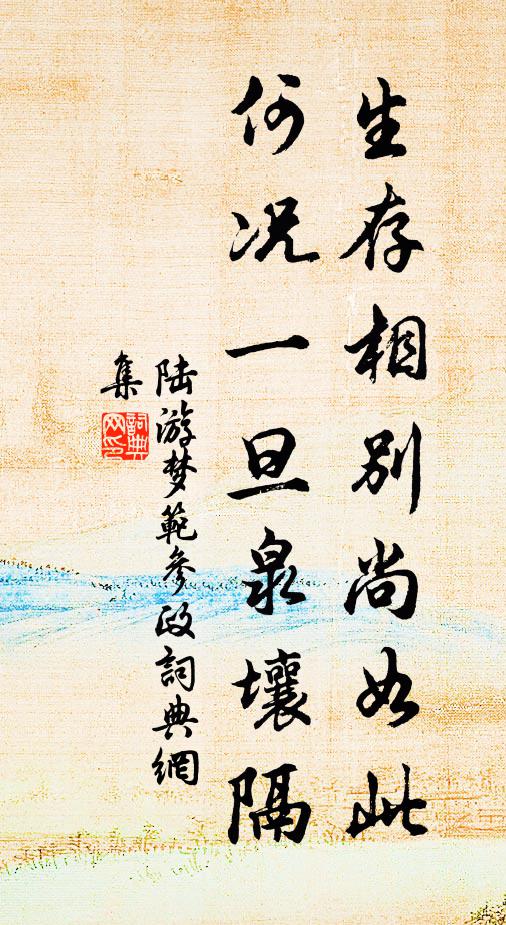 生存相别尚如此
何况一旦泉壤隔
陆游梦範参政詞典網
集
詞典
网印